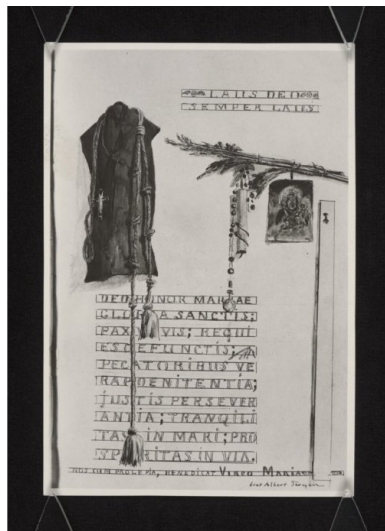 LAUS DEO
SEMPER LAUS
DEO HONOR MARIAE
GLORIA SANCTIS;
PAX VIVIS; REQUI
ES DEFUNCTIS; A
PECATORIBUS VE
RA POENITENTIA;
JUSTIS PERSEVER
ANTIA; TRANQILI
TAS IN MARI; PRO
SPERITAS IN VIA.
NOS CUM PROLE PIA, BENEDICAT VIRGO MARIA